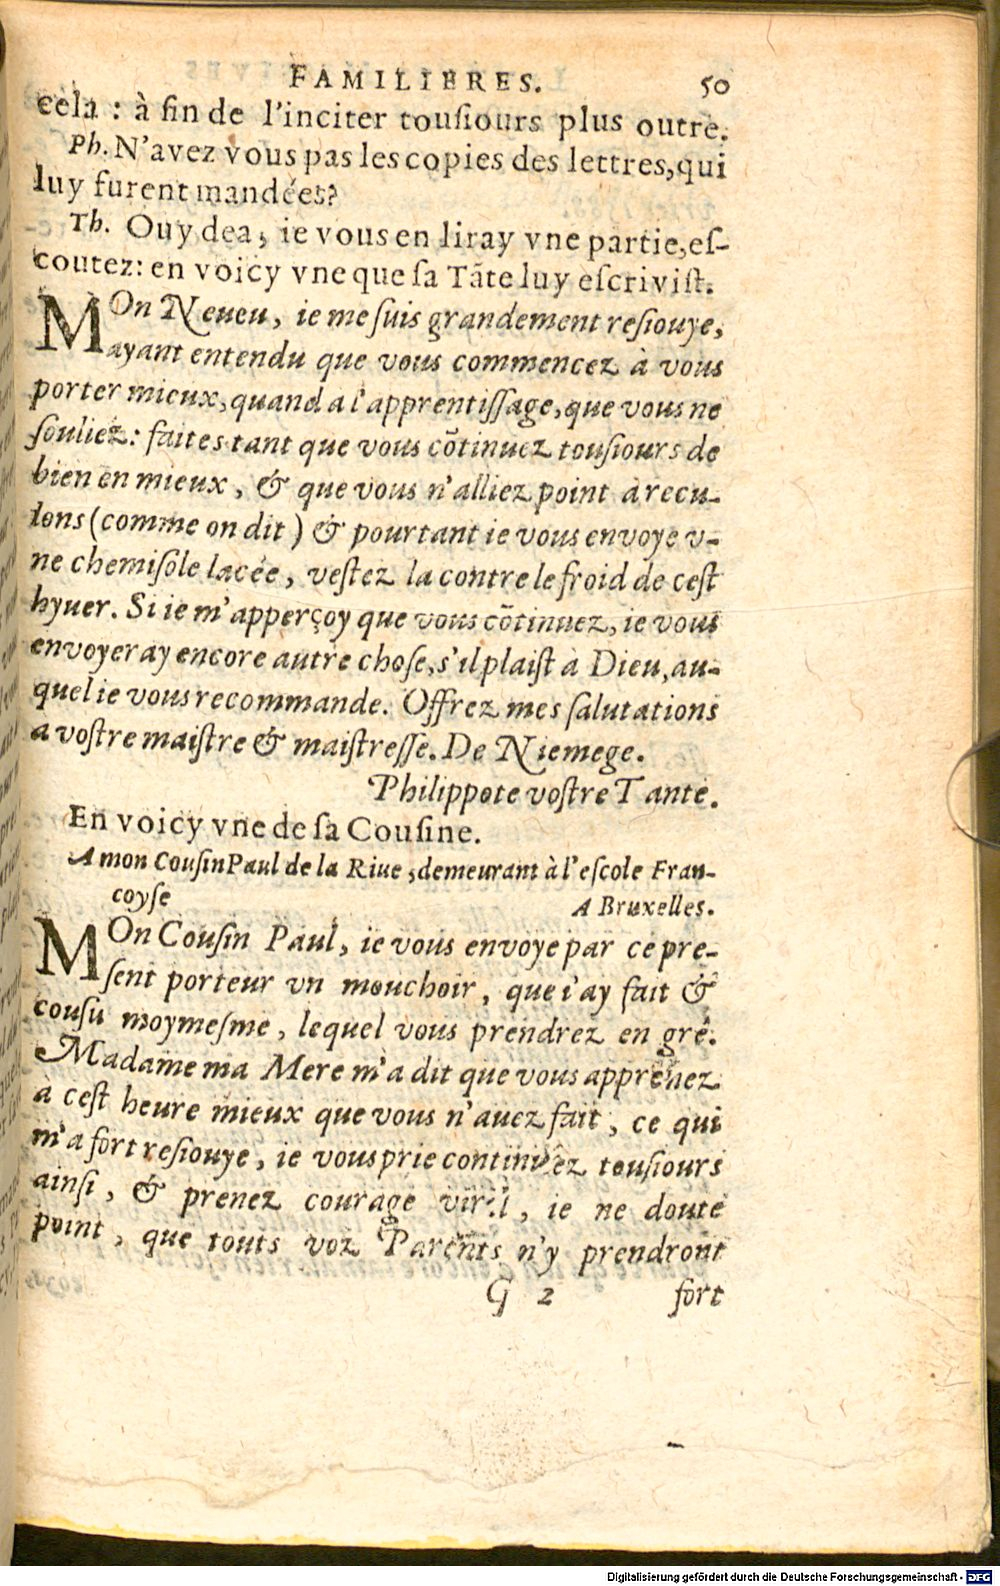 FAMILIERES. 50
cela : à fin de l'inciter touſiours plus outre.
Ph. N'avez vous pas les copies des lettres, qui
luy furent mandées?
Th. Ouy dea, ie vous en liray vne partie, eſ-
coutez: en voicy vne que ſa Tãte luy eſcriviſt.
MOn Neueu, ie me ſuis grandement reſiouye,
ayant entendu que vous commencez à vous
porter mieux, quand a l'apprentiſſage, que vous ne
ſouliez: faites tant que vous cõtinuez touſiours de
bien en mieux, & que vous n'alliez point à recu-
lons (comme on dit) & pourtant ie vous envoye v-
ne chemiſole lacée, veſtez la contre le froid de ceſt
hyuer. Si ie m'apperçoy que vous cõtinuez, ie vous
envoyeray encore autre choſe, s'il plaiſt à Dieu, au-
quel ie vous recommande. Offrez mes ſalutations
a voſtre maiſtre & maiſtreſſe. De Niemege.
Philippote voſtre Tante.
En voicy vne de ſa Couſine.
A mon Couſin Paul de la Riue, demeurant à l'eſcole Fran-
coyſe A Bruxelles.
MOn Couſin Paul, ie vous envoye par ce pre-
ſent porteur vn mouchoir, que i'ay fait &
couſu moymeſme, lequel vous prendrez en gré.
Madame ma Mere m'a dit que vous apprenez
à ceſt heure mieux que vous n'auez fait, ce qui
m'a fort reſiouye, ie vous prie continuëz touſiours
ainſi, & prenez courage viril, ie ne doute
point, que touts voz Parents n'y prendront
G 2 fort
Digitalisierung gefördert durch die Deutsche Forschungsgemeinschaft - DFG